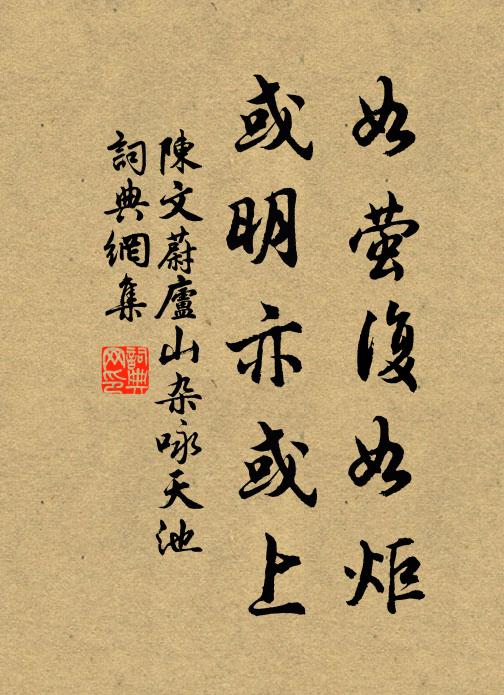 如萤復如炬
或明亦或上
陳文蔚廬山杂咏天池
詞典網集
詞典网印